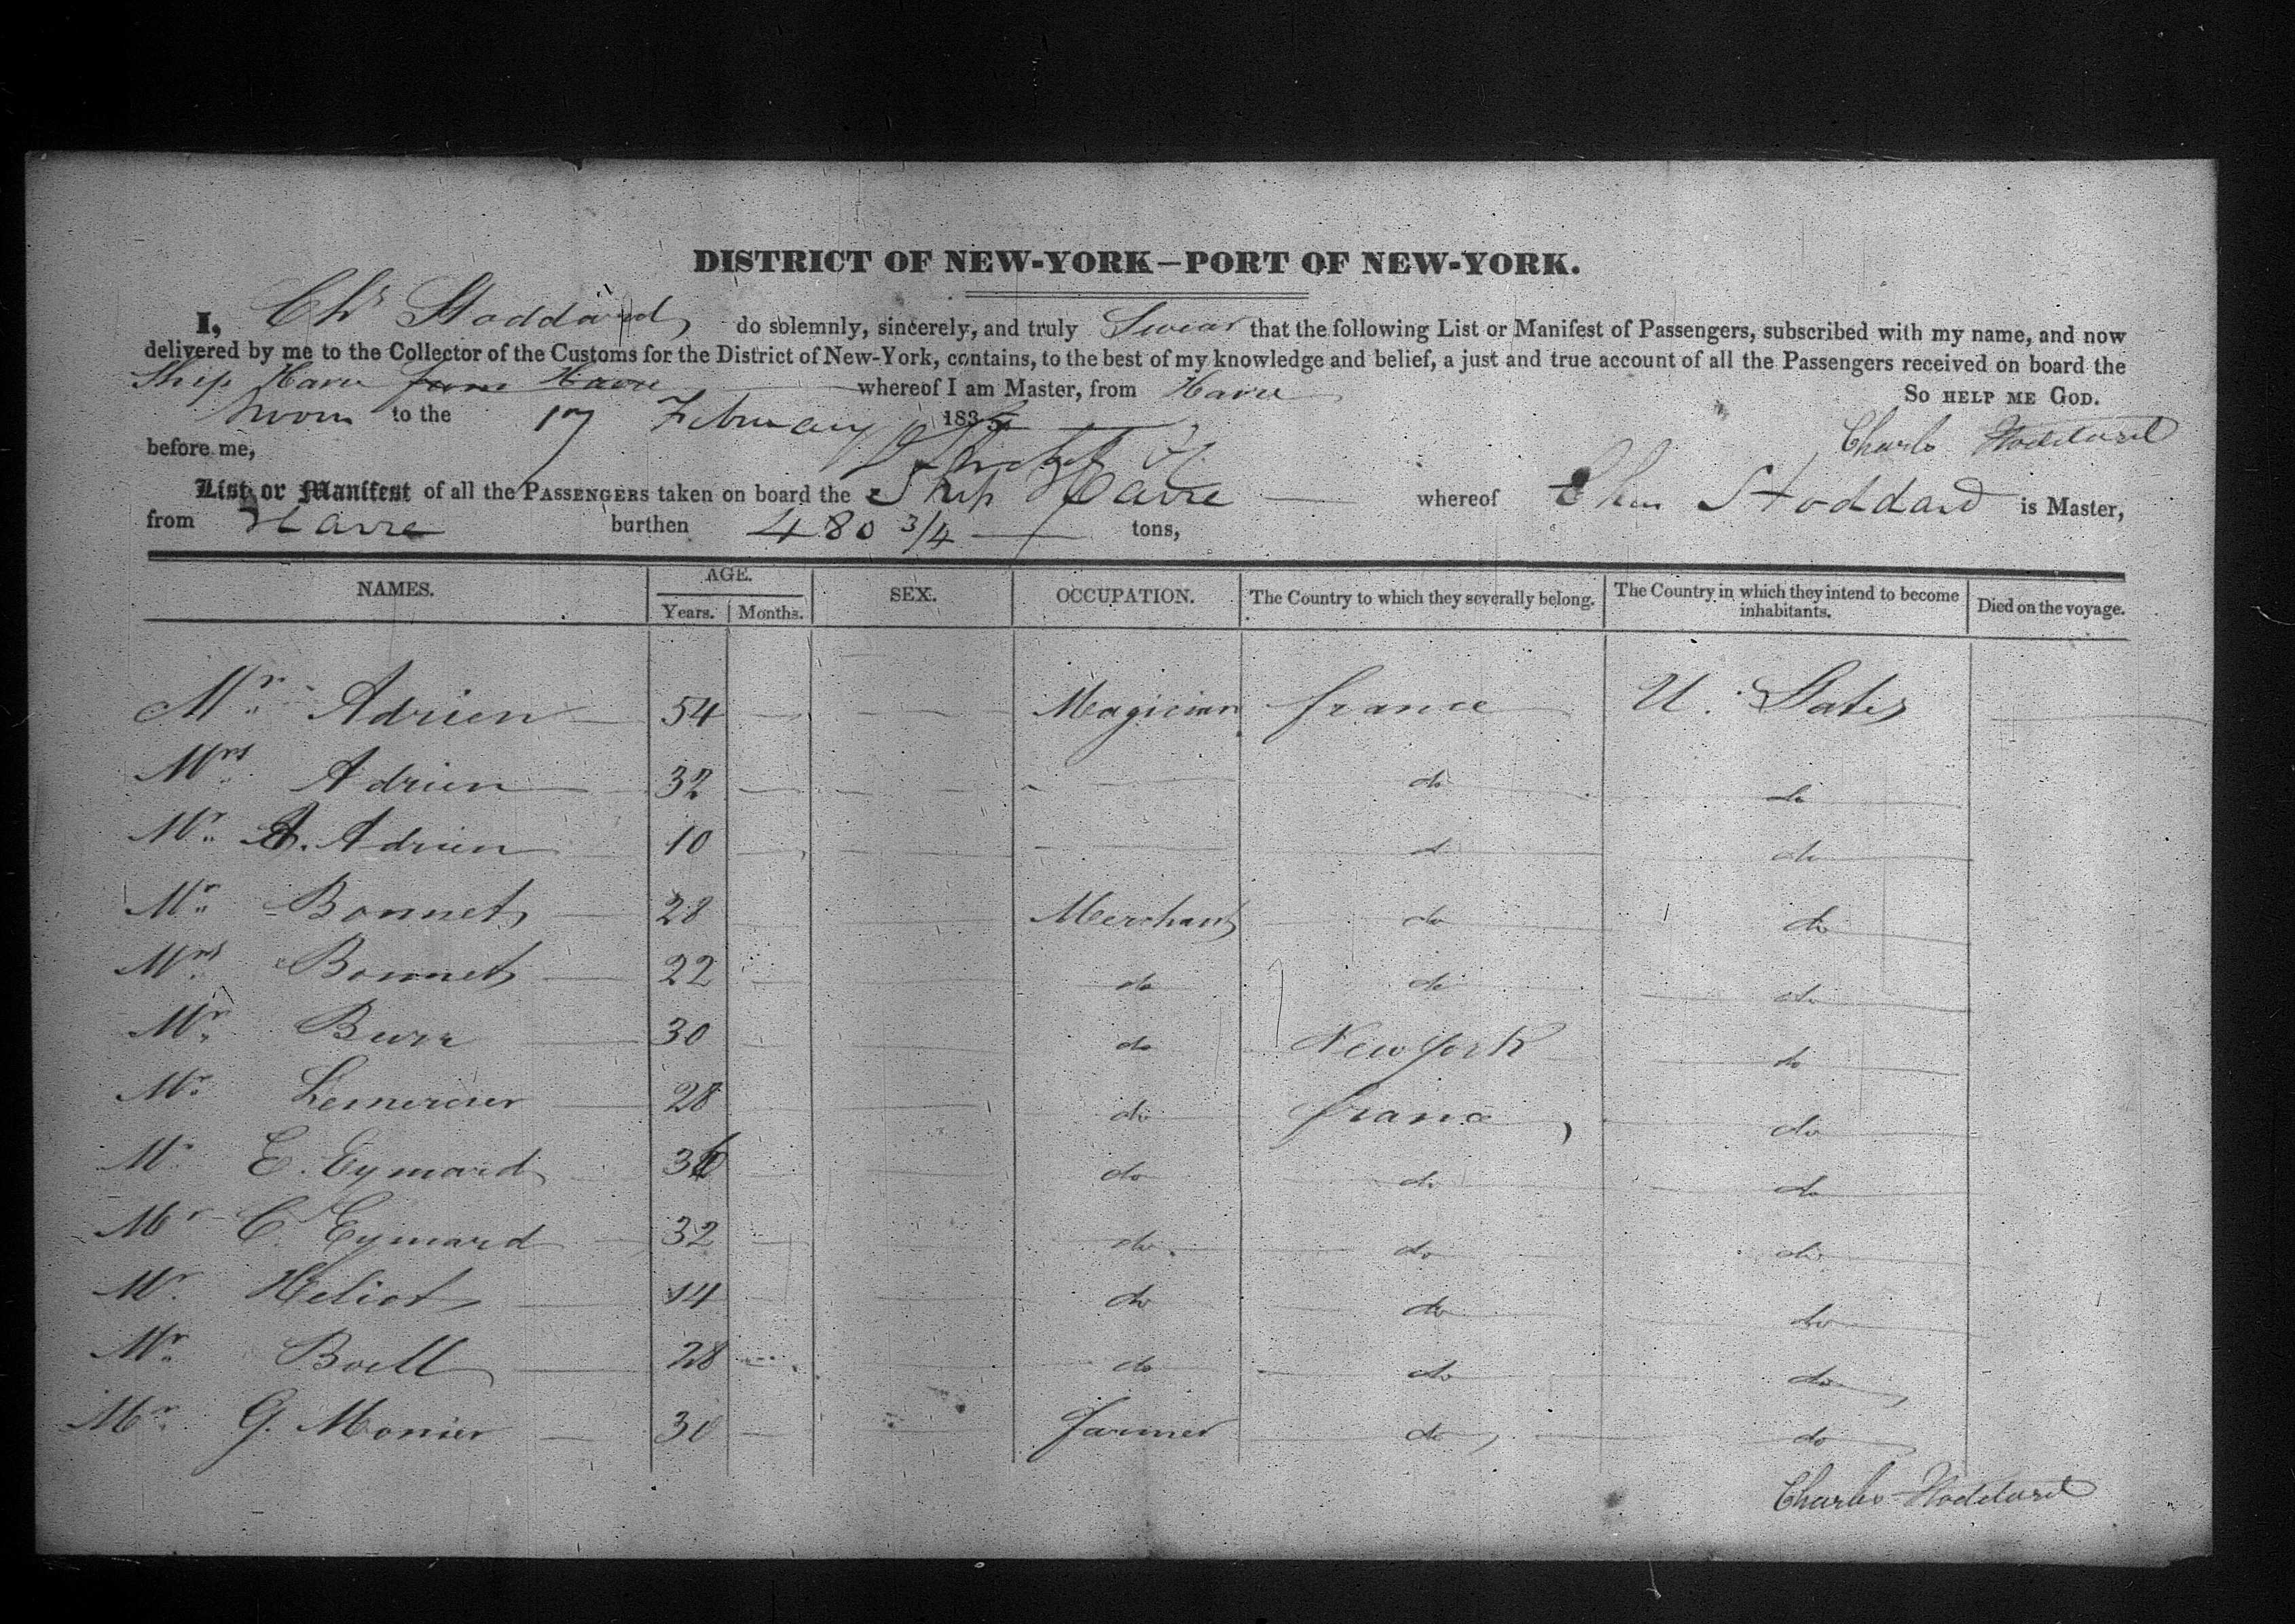 DISTRICT OF NEW-YORK—PORT OF NEW-YORK.
I, Chs Stoddard, do solemnly, sincerely, and truly Swear that the following List or Manifest of Passengers, subscribed with my name, and now
delivered by me to the Collector of the Customs for the District of New-York, contains, to the best of my knowledge and belief, a just and true account of all the Passengers received on board the
Ship Havre from Havre whereof I am Master, from Havre So HELP ME GOD.
Sworn to the 17 February 183 Charles Stoddard
before me,
List or Manifest of all the PASSENGERS taken on board the Ship Havre whereof Chas Stoddard is Master,
from Havre burthen 480 3/4 tons,
NAMES. AGE. SEX. OCCUPATION. The Country to which they severally belong. The Country in which they intend to become inhabitants. Died on the voyage.
Years. Months.
Mr Adrien 54 Magician france U. States
Mrs Adrien 32 do do
Mr A. Adrien 10 d do
Mr Bonnet 28 Merchant do do
Mrs Bonnet 22 do do do
Mr Burr 30 do New York do
Mr Lemercier 28 do france do
Mr E. Eymard 36 do do do
Mr C. Eymard 32 do do do
Mr Heliot 14 do do do
Mr Boell 28 do do do
Mr G. Monier 30 farmer do do
Charles Stoddard